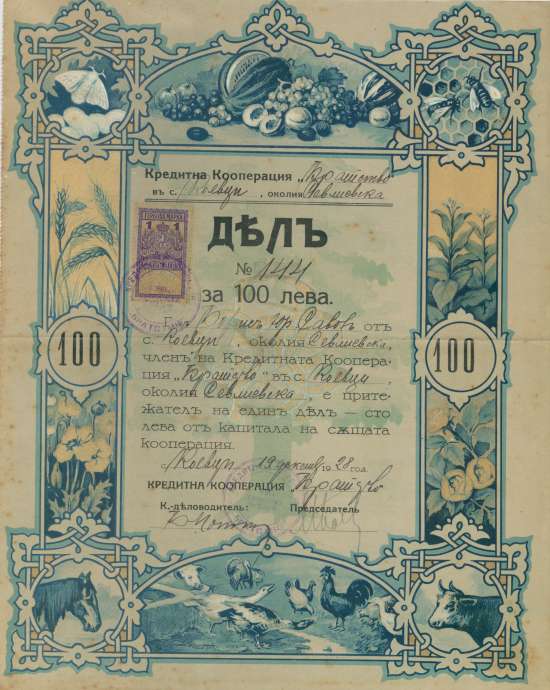 100
100
Кредитна Кооперация „Братство
въ с. Коевци, околия Севлиевска
ДѢЛЪ
№ 144
за 100 лева.
1 1
100
100
Г-нъ Савовъ отъ
с. Коевци, околия Севлиевска,
членъ на Кредитната Коопера-
ция „Братство" въ с. Коевци,
околия Севлиевска, е прите-
жатель на единъ дѣлъ — сто
лева от капитала на сѫщата
кооперация.
Коевци, 19 1928 год.
КРЕДИТНА КООПЕРАЦИЯ Братство
К.-дѣловодитель: Председатель